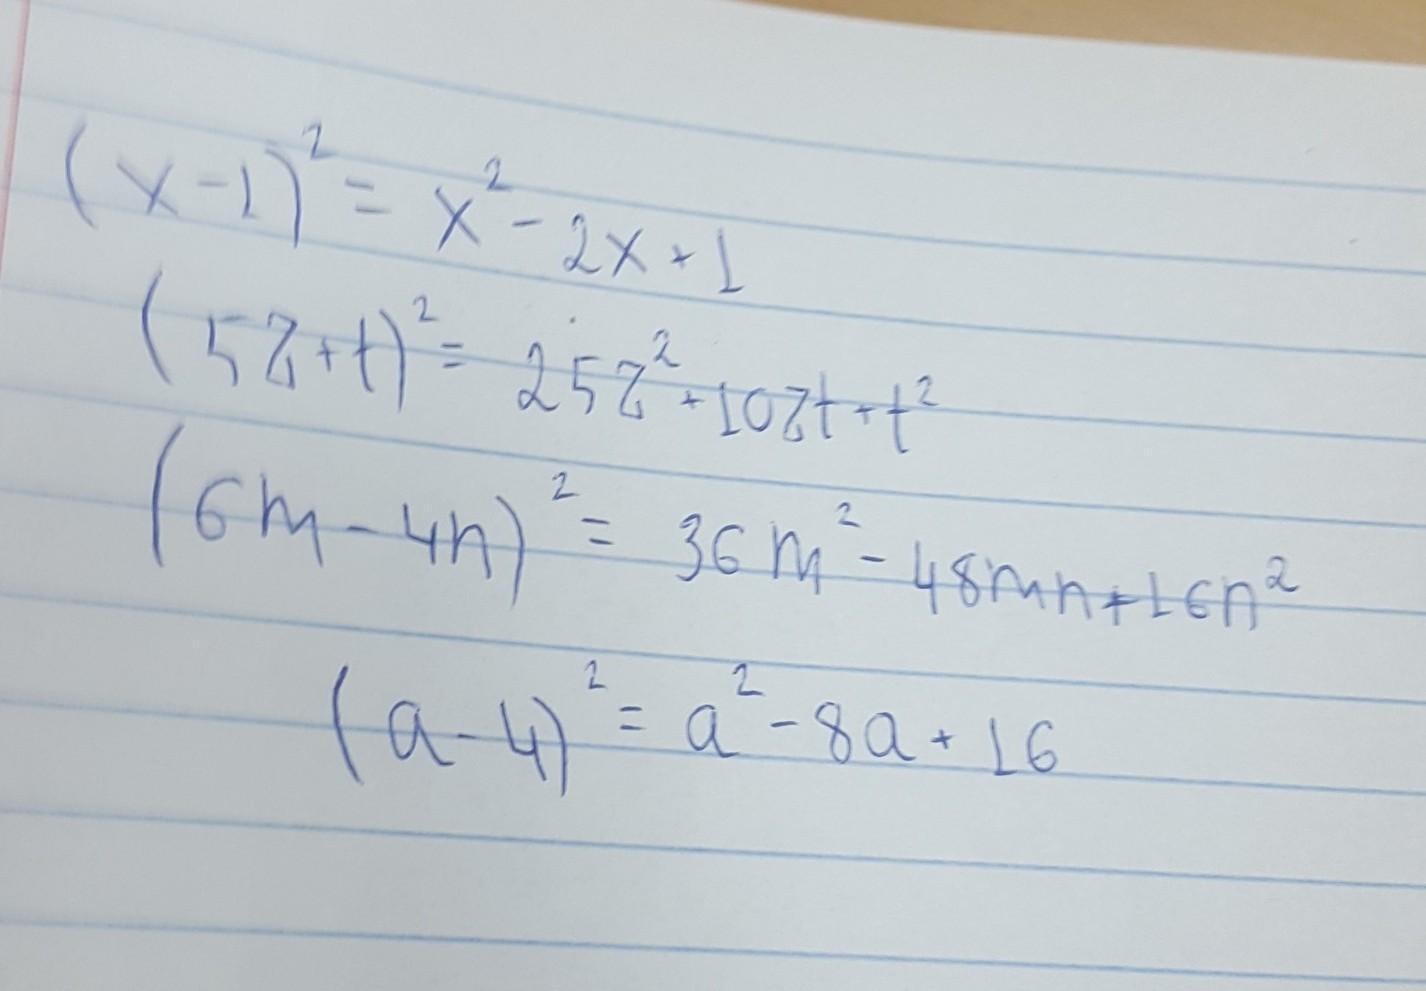 (x-1)² = x² - 2x + 1
(5z+t)² = 25z² + 10zt + t²
(6m - 4n)² = 36m² - 48mn + 16n²
(a - 4)² = a² - 8a + 16